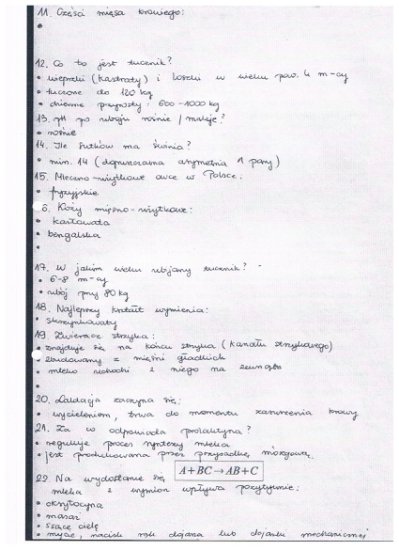 11. Części mięsa krowiego:
•
12. Co to jest tucznik?
• wieprzki (kastraty) i loszki w wieku pow. 4 m-cy
• tuczone do 120 kg
• dzienne przyrosty: 600-1000 kg
13. pH po uboju rośnie / maleje?
• rośnie
14. Ile sutków ma świnia?
• min. 14 (dopuszczalna asymetria 1 pary)
15. Mleczno-użytkowe owce w Polsce:
• fryzyjskie
6. Kozy mięsno-użytkowe:
• karłowata
• bengalska
•
17. W jakim wieku ubijany tucznik?
• 6-8 m-cy
• ubój przy 80 kg
18. Najlepszy kształt wymienia:
• skrzynkowaty
19. Zwieracz strzyka:
• znajduje się na końcu strzyka (kanału strzykowego)
• zbudowany z mięśni gładkich
• mleko uchodzi z niego na zewnątrz
•
20. Laktacja zaczyna się:
• wycieleniem, trwa do momentu zasuszenia krowy
21. Za co odpowiada prolaktyna?
• reguluje proces syntezy mleka
• jest produkowana przez przysadkę mózgową
A+BC→AB+C
22. Na wydostanie się
mleka z wymion wpływa pozytywnie:
• oksytocyna
• masaż
• ssące cielę
• mycie, nacisk rąk dojarza lub dojarki mechanicznej